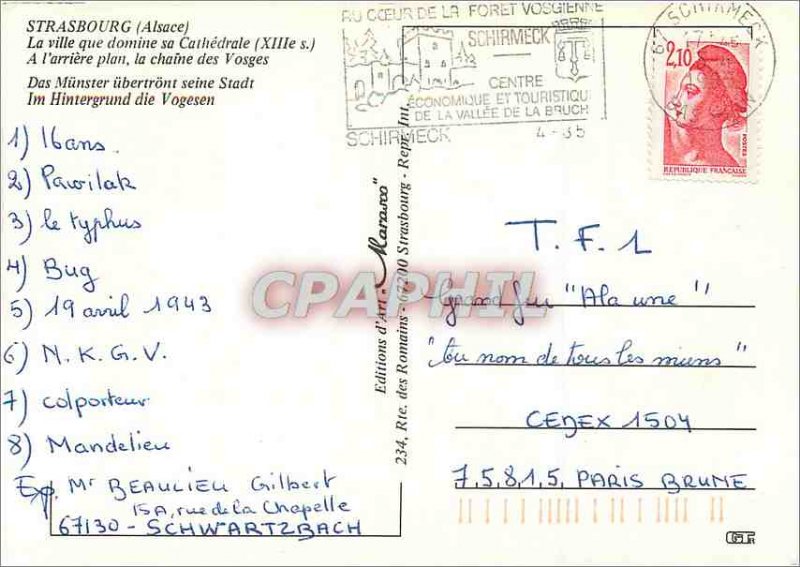 STRASBOURG (Alsace)
La ville que domine sa Cathédrale (XIIIe s.)
A l'arrière plan, la chaîne des Vosges
Das Münster übertrönt seine Stadt
Im Hintergrund die Vogesen
AU CŒUR DE LA FORET VOSGIENNE
SCHIRMECK
CENTRE
ÉCONOMIQUE ET TOURISTIQU
DE LA VALLÉE DE LA BRUCH
SCHIRMECK 4-35
67 SCHIRMECK
2,10
POSTES
REPUBLIQUE FRANÇAISE
1) 16 ans.
2) Pawilak
3) le typhus
4) Bug
5) 19 avril 1943
6) N.K.G.V.
7) colporteur
8) Mandelieu
Exp. Mr BEAULIEU Gilbert
15A, rue de la Chapelle
67130 - SCHWARTZBACH
Editions d'Art "Marasco"
234, Rte. des Romains - 67200 Strasbourg - Repr. Int.
CPARAPHIL
T.F.1
Grand jeu "A la une"
"Au nom de tous les miens"
CEDEX 1504
7,5,8,1,5, PARIS BRUNE